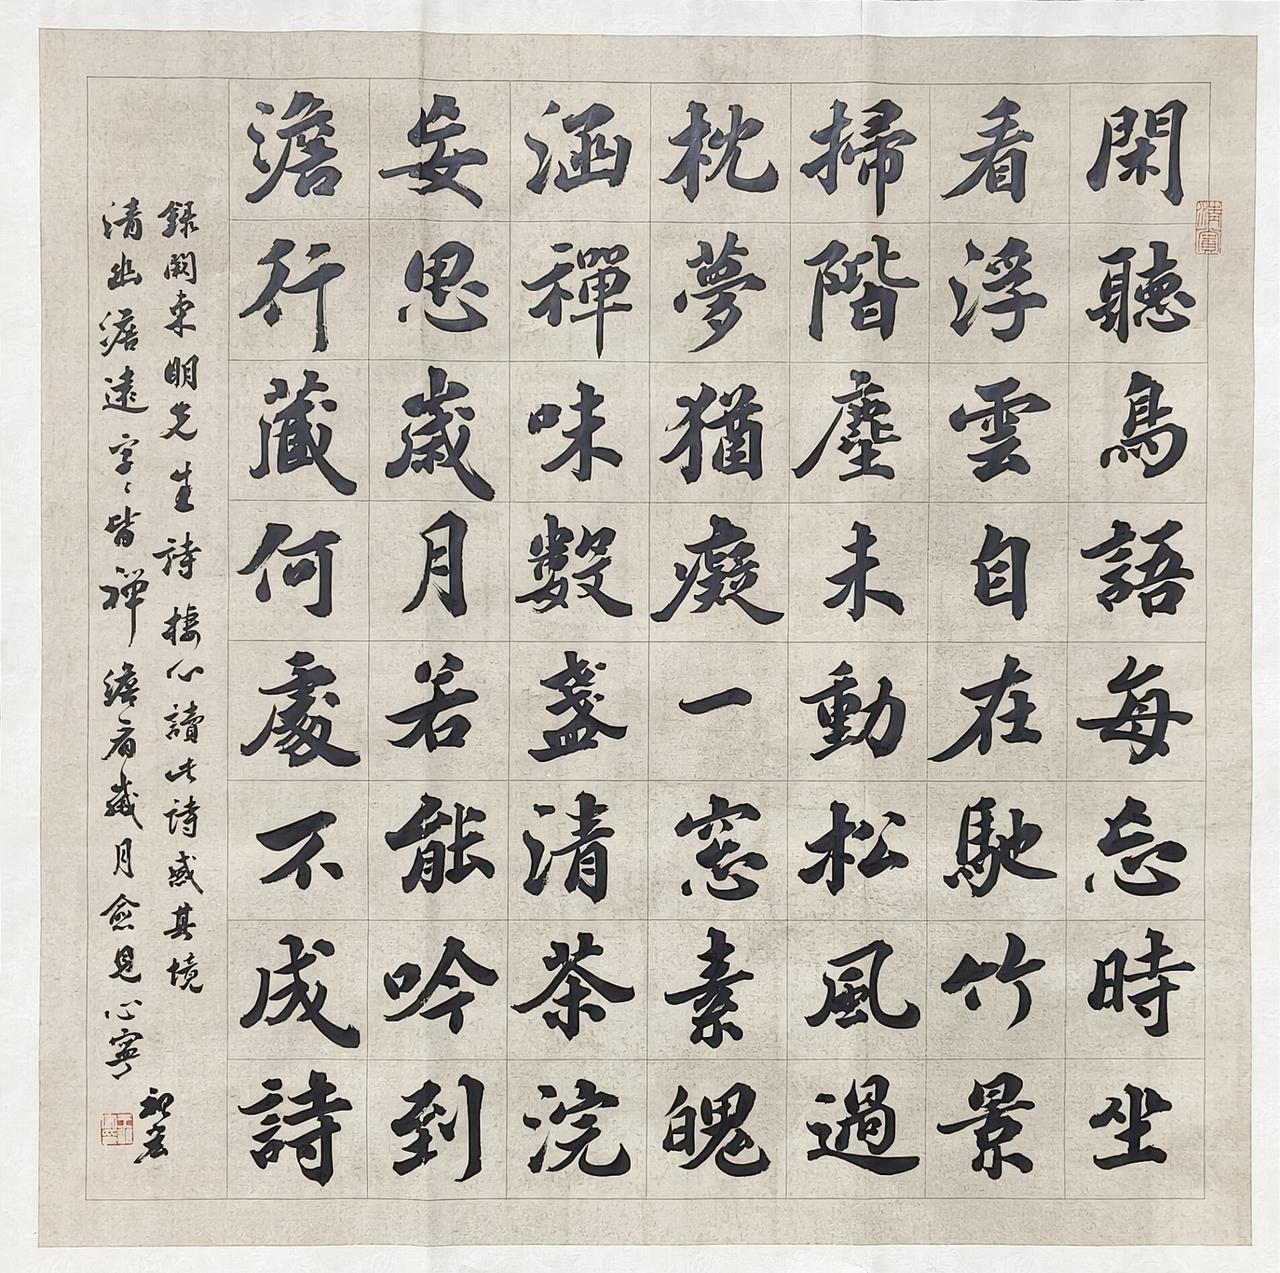 閑聽鳥語每忘時坐
看浮雲自在馳竹景
掃階塵未動松風過
枕夢猶癡一窓素魄
涵禪味數盞清茶浣
妄思歲月若能吟到
澹行藏何處不成詩
録闕東明先生詩棲心讀此詩感其境
清幽澹遠字字皆禪澹看歲月愈見心寧